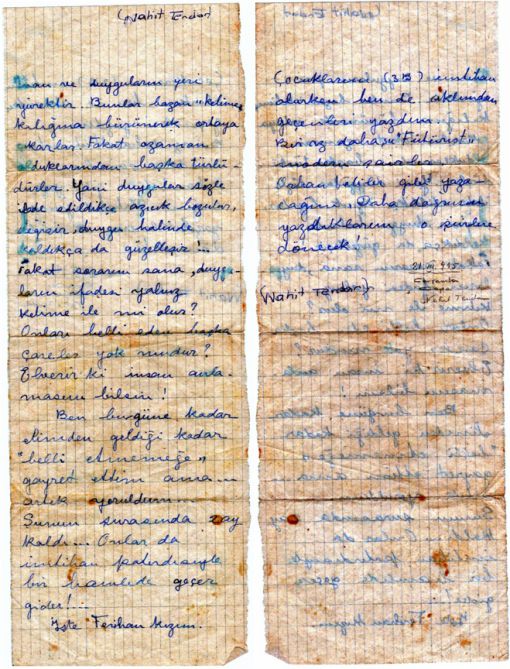 (Nahit Tendar)
İnsan ve duyguların yeri
yürektir. Bunlar bazan "kelime"
kılığına bürünerek ortaya
çıkarlar. Fakat ozaman
olduklarından başka türlü
dürler. Yani duygular sözle
ifade edildikçe azıcık bozulur,
değişir, duygu halinde
kaldıkça da güzelleşir!..
Fakat sorarım sana, duygu-
ların ifadesi yalnız
kelime ile mi olur?
Onları belli eden başka
çareler yok mudur?
Elverir ki insan anla-
masını bilsin!
Ben bugüne kadar
elimden geldiği kadar
"belli etmemeğe"
gayret ettim ama...
artık yoruldum...
Şunun şurasında ay
kaldı... Onlar da
imtihan patırdısiyle
bir hamlede geçer
gider!...
İşte Ferihan Kızım.
Çocuklarının (3B) imtihan
olurken ben de aklımdan
geçenleri yazdım.
Biraz daha "Fütürist"
modern şairler
Orhan Veliler gibi yaza-
cağım. Daha doğrusu
yazdıklarım o şiirlere
dönecek!
(Nahit Tendar)
Nahit Tendar